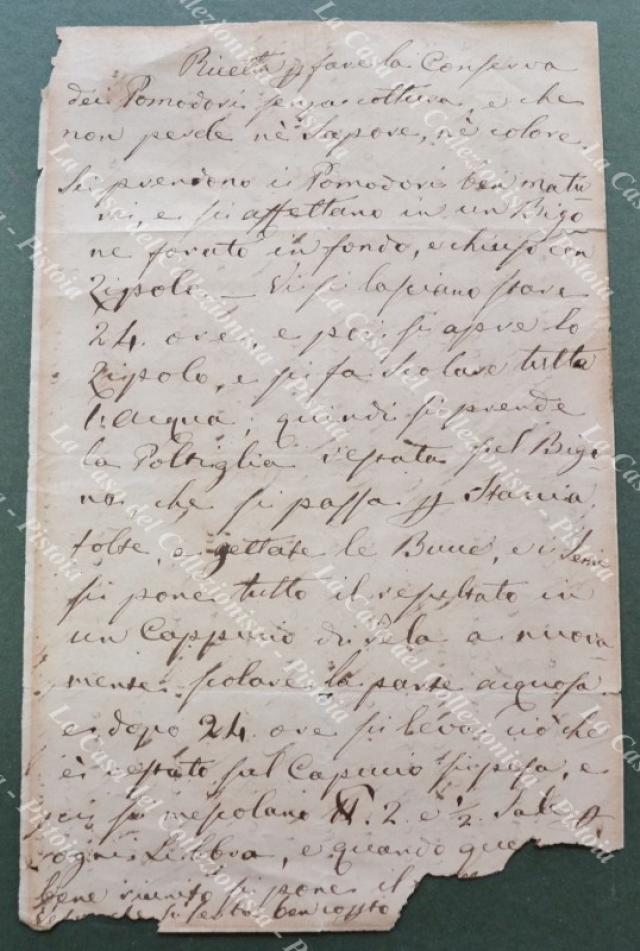 Ricetta p fare la Conserva
dei Pomodori senza cottura, e che
non perde nè Sapore, nè colore.
Si prendono i Pomodori ben matu
ri, e si affettano in un Bigo
ne forato in fondo, e chiuso con
Zipolo — Vi si lasciano stare
24. ore, e poi si apre lo
Zipolo, e si fa scolare tutta
l'acqua; quindi si prende
la Poltiglia restata sul Bigo
ne che si passa p Stacia
tolte, e gettate le Bucce, e i Semi
si pone tutto il resultato in
un Cappuccio di Tela a nuova
mente scolare la parte acquosa
e dopo 24. ore si leva ciò che
è restato sul Capuccio si pesa, e
poi si mescolano 2. e ½. Sale p
ogni Libbra, e quando
bene riunito si pone il
ben cotto
La Casa del Collezionista - Pistoia